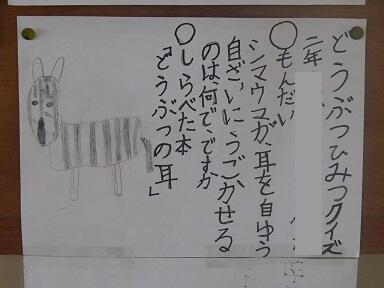 どうぶつひみつクイズ
二年
○もんだい
シマウマが、耳を自ゆう
自ざいにうごかせる
のは、何でですか
○しらべた本
「どうぶつの耳」